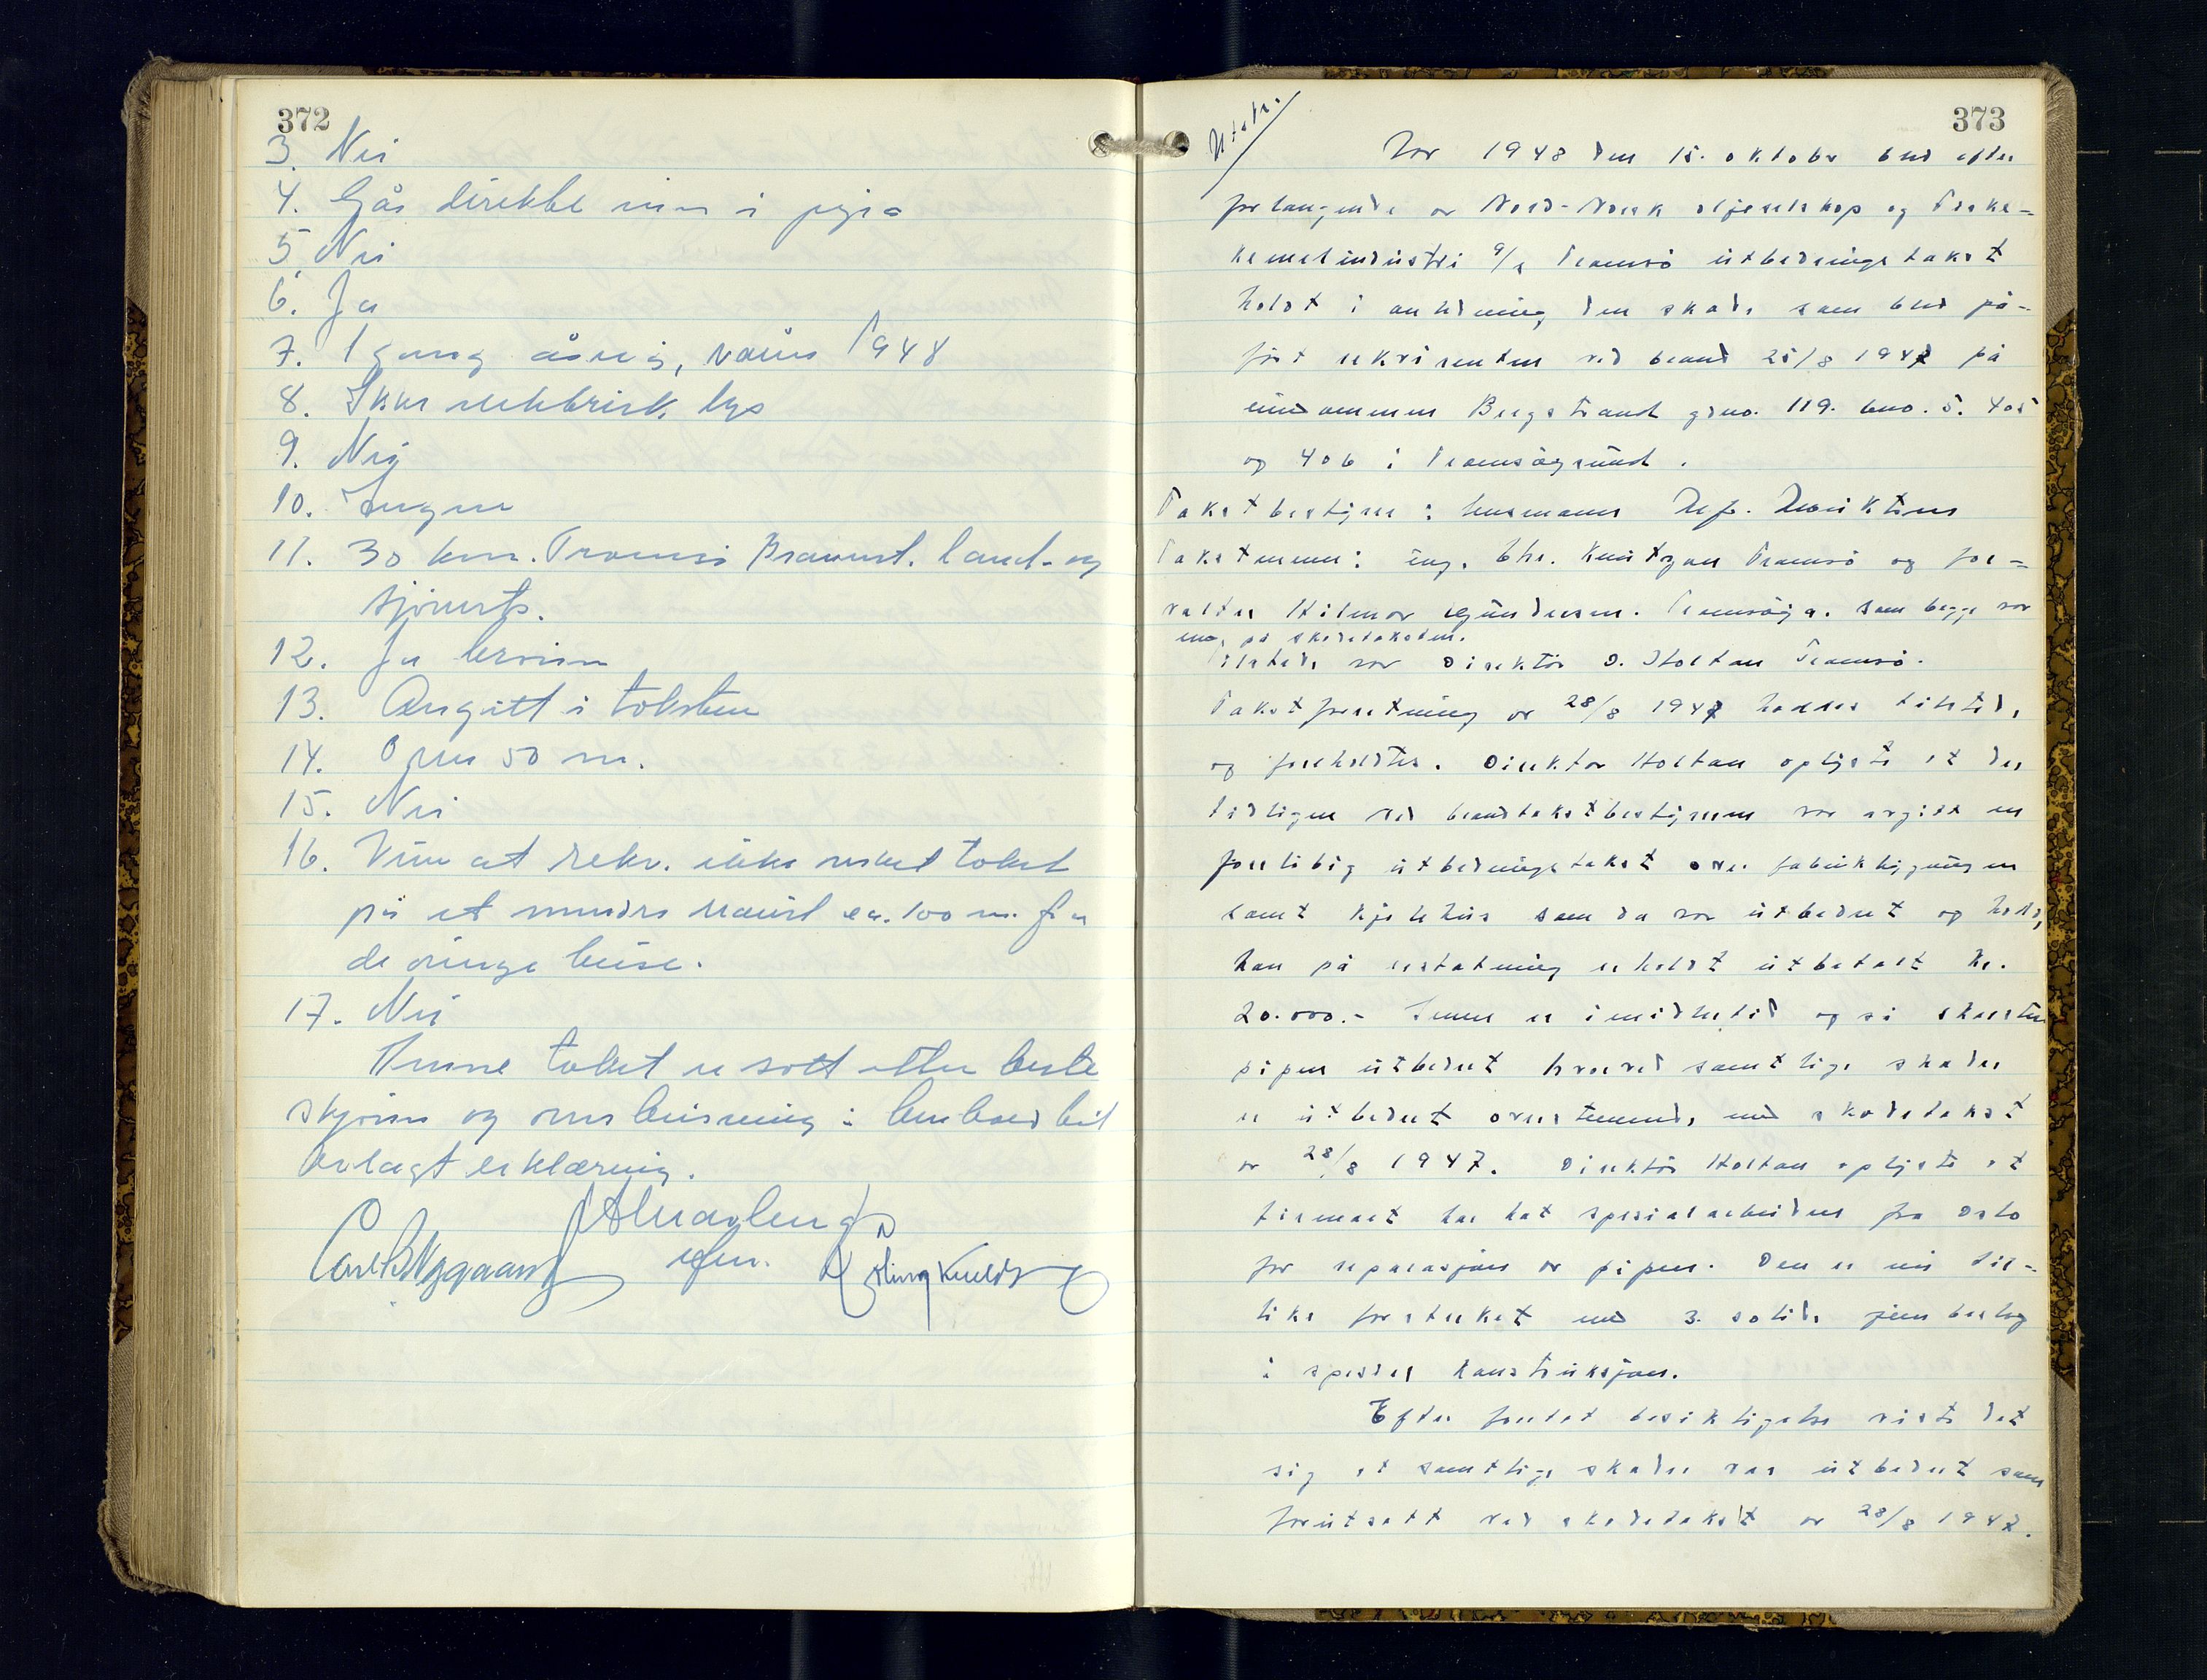 372
3. Nei
4. Går direkte inn i pipa
5. Nei
6. Ja
7. 1 gang årlig, våren 1948
8. Ikke elektrisk lys
9. Nei
10. Ingen
11. 30 km. Tromsö Brannst. land- og
sjöverts.
12. Ja
13. Angitt i taksten
14. Over 50 m.
15. Nei
16. Vites at rekv. ikke takst
på et mindre naust ca. 100 m. fra
de övrige huse.
17. Nei
Denne takst er satt etter beste
skjönn og overbevisning i henhold til
avlagt erklæring.
373
Utstr.
År 1948 den 15. oktober blev efter
forlangende av Nord-Norsk oljeselskap og Tranke-
kemelindustri A/S Tromsö utbedringstakst
holdt i anledning den skade som blev på-
fört rekvirenten ved brand 25/8 1947 på
eiendommen Bergstrand gno. 119. bno. 5. 405
og 406 i Tromsögrund.
Takstbestyrer: lensmann
Takstmenn: ing. Chr. Knutzen Tromsö og for-
valter Hilmar Gundersen. Tromsög. som begge var
med på skadetaksten.
Tilstede var direktör O. Holtan Tromsö.
Takstforretning av 28/8 1947 havdes tilstede,
og foreholdtes. Direktör Holtan oplyste at der
tidligere ved brandtakstbestyreren var avgitt en
forelöbig utbedringstakst over fabrikbygningen
samt kjelhus som da var utbedret og hvde,
han på erstatning erholdt utbetalt kr.
20.000.- Denne er imidlertid også skorsten
pipen utbedret hvorved samtlige skader
er utbedret overstemmende med skadetakst
av 28/8 1947. Direktör Holtan oplyste at
firmaet har hat spesialarbeider fra Oslo
for reparasjon av pipen. Den er nu til-
like forsterket med 3. solide jernbeslag
i spesiel konstruksjon.
Efter foretat besiktigelse viste det
sig at samtlige skader var utbedret som
forutsatt ved skadetakst av 28/8 1947.